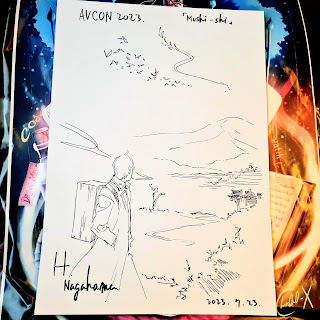 AVCON 2023.
「Mushi-shi」
H.
Nagahama
2023. 7. 23.